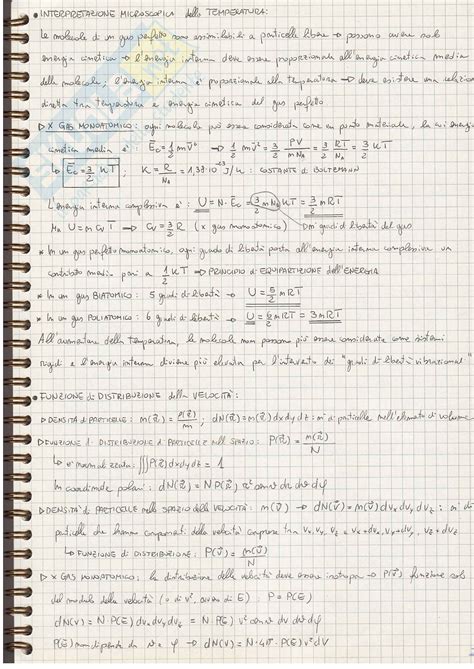 • INTERPRETAZIONE MICROSCOPICA della TEMPERATURA:
Le molecole di un gas perfetto sono assimilabili a particelle libere → possono avere solo
energia cinetica → l'energia interna deve essere proporzionale all'energia cinetica media
delle molecole, l'energia interna è proporzionale alla temperatura → deve esistere una relazione
diretta tra temperatura e energia cinetica del gas perfetto
▷ X GAS MONOATOMICO: ogni molecola può essere considerata come un punto materiale, la cui energia
cinetica media è: Ēc = 1/2 m v̄² → 1/2 m v̄² = 3/2 PV/(m NA) = 3/2 RT/NA = 3/2 KT
↳ Ēc = 3/2 KT ; K = R/NA = 1,38·10⁻²³ J/K : COSTANTE di BOLTZMANN
L'energia interna complessiva è: U = N·Ec = 3/2 m NA KT = 3/2 m RT
Ma U = m Cv T → Cv = 3/2 R (x gas monoatomico) → m° gradi di libertà del gas
* In un gas perfetto monoatomico, ogni grado di libertà porta all'energia interna complessiva un
contributo medio pari a 1/2 KT → PRINCIPIO di EQUIPARTIZIONE dell'ENERGIA
* In un gas BIATOMICO: 5 gradi di libertà → U = 5/2 m RT
* In un gas POLIATOMICO: 6 gradi di libertà → U = 6/2 m RT = 3 m RT
All'aumentare della temperatura, le molecole non possono più essere considerate come sistemi
rigidi e l'energia interna diviene più elevata per l'intervento di "gradi di libertà vibrazionali"
• FUNZIONE di DISTRIBUZIONE della VELOCITÀ:
▷ DENSITÀ di PARTICELLE: m(r⃗) = ρ(r⃗)/m ; dN(r⃗) = m(r⃗) dx dy dz : m° di particelle nell'elemento di volume
▷ FUNZIONE di DISTRIBUZIONE di PARTICELLE nello SPAZIO: P(r⃗) = m(r⃗)/N
↳ è normalizzata: ∭P(r⃗) dx dy dz = 1
In coordinate polari: dN(r⃗) = N P(r⃗) r² sen ϑ dr dϑ dφ
▷ DENSITÀ di PARTICELLE nello SPAZIO della VELOCITÀ: m(v⃗) → dN(v⃗) = m(v⃗) dvx dvy dvz : m° di
particelle che hanno componenti della velocità comprese tra vx, vy, vz e vx+dvx, vy+dvy, vz+dvz
↳ FUNZIONE di DISTRIBUZIONE: P(v⃗) = m(v⃗)/N
▷ X GAS MONOATOMICO: la distribuzione delle velocità deve essere isotropa → P(v⃗) funzione solo
del modulo della velocità (o di v², ovvero di E): P = P(E)
dN(v) = N·P(E) dvx dvy dvz = N·P(E) v² sen ϑ dv dϑ dφ
P(E) non dipende da ϑ e φ → dN(v) = N·4π·P(E) v² dv